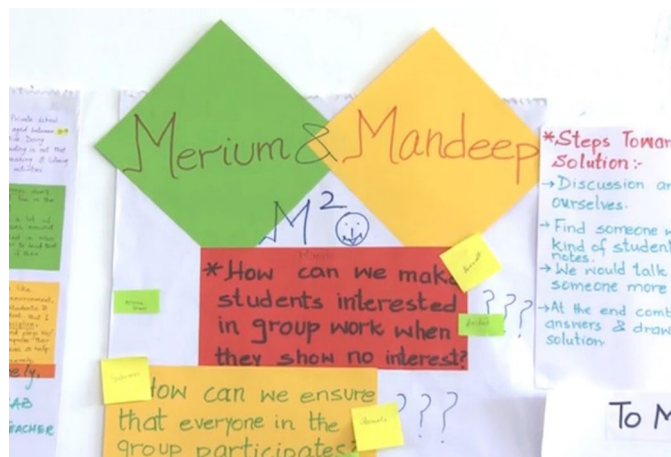 Private School
aged between
Merium & Mandeep
M²
*How can we make
students interested
in group work when
they show no interest?
???
How can we ensure
that everyone in the
group participates?
???
*Steps Towar
Solution:-
→ Discussion an
ourselves.
→ Find someone w
kind of student
notes.
→ We would talk
someone more
→ At the end comb
answers & draw
solution.
To M
ely,
AB
EACHER